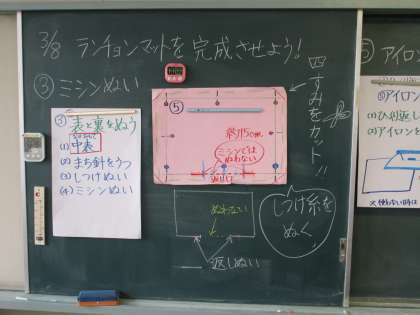 3/8 ランチョンマットを完成させよう!
③ ミシンぬい
③ 表と裏をぬう
(1) 中表
(2) まち針をうつ
(3) しつけぬい
(4) ミシンぬい
⑤
約15cm
ミシンでは
ぬわない
返し口
四すみをカット!!
ぬわない
返しぬい
しつけ糸を
ぬく
⑤ アイロン
⑤アイロン
(1)ひっくり返し
(2)アイロンを
×使わない時は